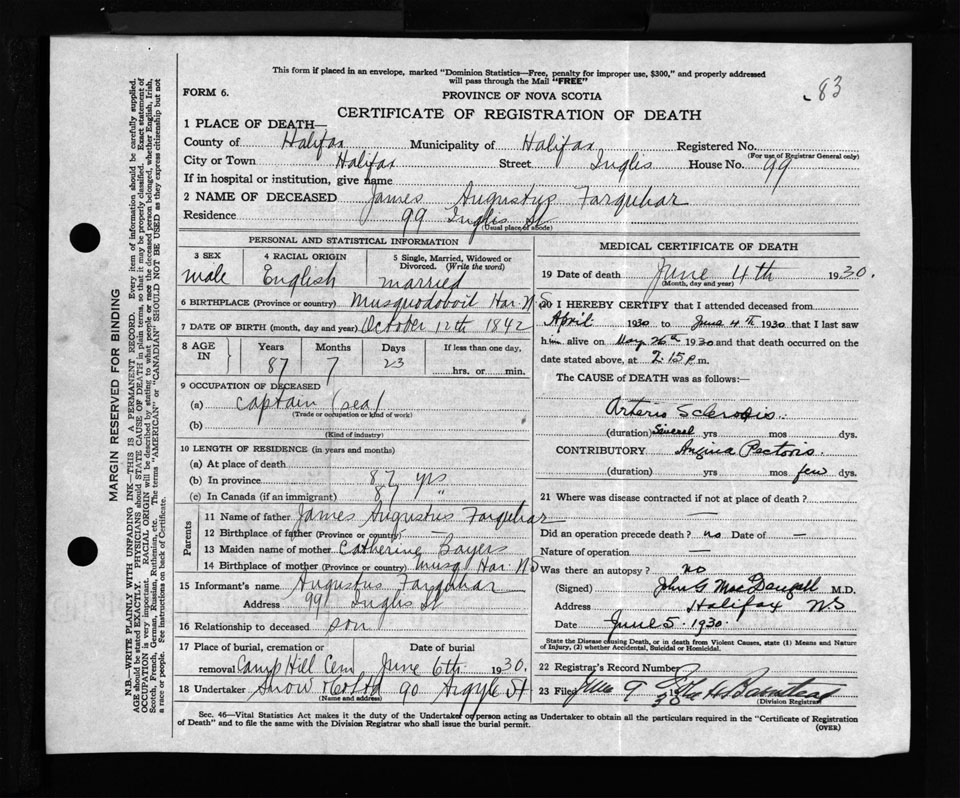 This form if placed in an envelope, marked "Dominion Statistics—Free, penalty for improper use, $300," and properly addressed
will pass through the Mail "FREE"
83
FORM 6.
PROVINCE OF NOVA SCOTIA
CERTIFICATE OF REGISTRATION OF DEATH
1 PLACE OF DEATH—
County of Halifax Municipality of Halifax Registered No.
(For use of Registrar General only)
City or Town Halifax Street Inglis House No. 99
If in hospital or institution, give name
2 NAME OF DECEASED James Augustus Farquhar
Residence 99 Inglis St
(Usual place of abode)
PERSONAL AND STATISTICAL INFORMATION
3 SEX 4 RACIAL ORIGIN 5 Single, Married, Widowed or
Divorced. (Write the word)
male English married
6 BIRTHPLACE (Province or country) Musquodoboit Har. N S
7 DATE OF BIRTH (month, day and year) October 12th 1842
8 AGE IN Years Months Days If less than one day,
87 7 23 hrs. or min.
9 OCCUPATION OF DECEASED
(a) Captain (sea)
(Trade or occupation or kind of work)
(b)
(Kind of industry)
10 LENGTH OF RESIDENCE (in years and months)
(a) At place of death
(b) In province 87 yrs
(c) In Canada (if an immigrant) 87 "
Parents
11 Name of father James Augustus Farquhar
12 Birthplace of father (Province or country)
13 Maiden name of mother Catherine Bayers
14 Birthplace of mother (Province or country) Musq Har. N S
15 Informant's name Augustus Farquhar
Address 99 Inglis St
16 Relationship to deceased son
17 Place of burial, cremation or Date of burial
removal Camp Hill Cem June 6th 1930.
18 Undertaker Snow & Co Ltd 90 Argyle St
(Name and address)
MEDICAL CERTIFICATE OF DEATH
19 Date of death June 4th 1930.
(Month, day and year)
20 I HEREBY CERTIFY that I attended deceased from
April 1930 to June 4th 1930 that I last saw
him alive on May 26th 1930 and that death occurred on the
date stated above, at 2.15 P.m.
The CAUSE OF DEATH was as follows:—
Arterio Sclerosis.
(duration) Several yrs mos dys.
CONTRIBUTORY Angina Pectoris.
(duration) yrs mos few dys.
21 Where was disease contracted if not at place of death? —
Did an operation precede death? no Date of —
Nature of operation —
Was there an autopsy? no
(Signed) John G MacDougall M.D.
Address Halifax NS
Date June 5. 1930.
State the Disease causing Death, or in death from Violent Causes, state (1) Means and Nature
of Injury, (2) whether Accidental, Suicidal or Homicidal.
22 Registrar's Record Number
23 Filed June 9 30
(Division Registrar)
Sec. 46—Vital Statistics Act makes it the duty of the Undertaker or person acting as Undertaker to obtain all the particulars required in the "Certificate of Registration
of Death" and to file the same with the Division Registrar who shall issue the burial permit. (OVER)
MARGIN RESERVED FOR BINDING
N.B.—WRITE PLAINLY WITH UNFADING INK—THIS IS A PERMANENT RECORD. Every item of information should be carefully supplied.
AGE should be stated EXACTLY. PHYSICIANS should STATE CAUSE OF DEATH in plain terms, so that it may be properly classified. Exact statement of
OCCUPATION is very important. RACIAL ORIGIN will be described by stating to what people or race the deceased person belonged, whether English, Irish,
Scotch, French, German, Russian, Ruthenian, etc. The terms "AMERICAN" or "CANADIAN" SHOULD NOT BE USED as they express citizenship but not
a race or people. See instructions on back of Certificate.